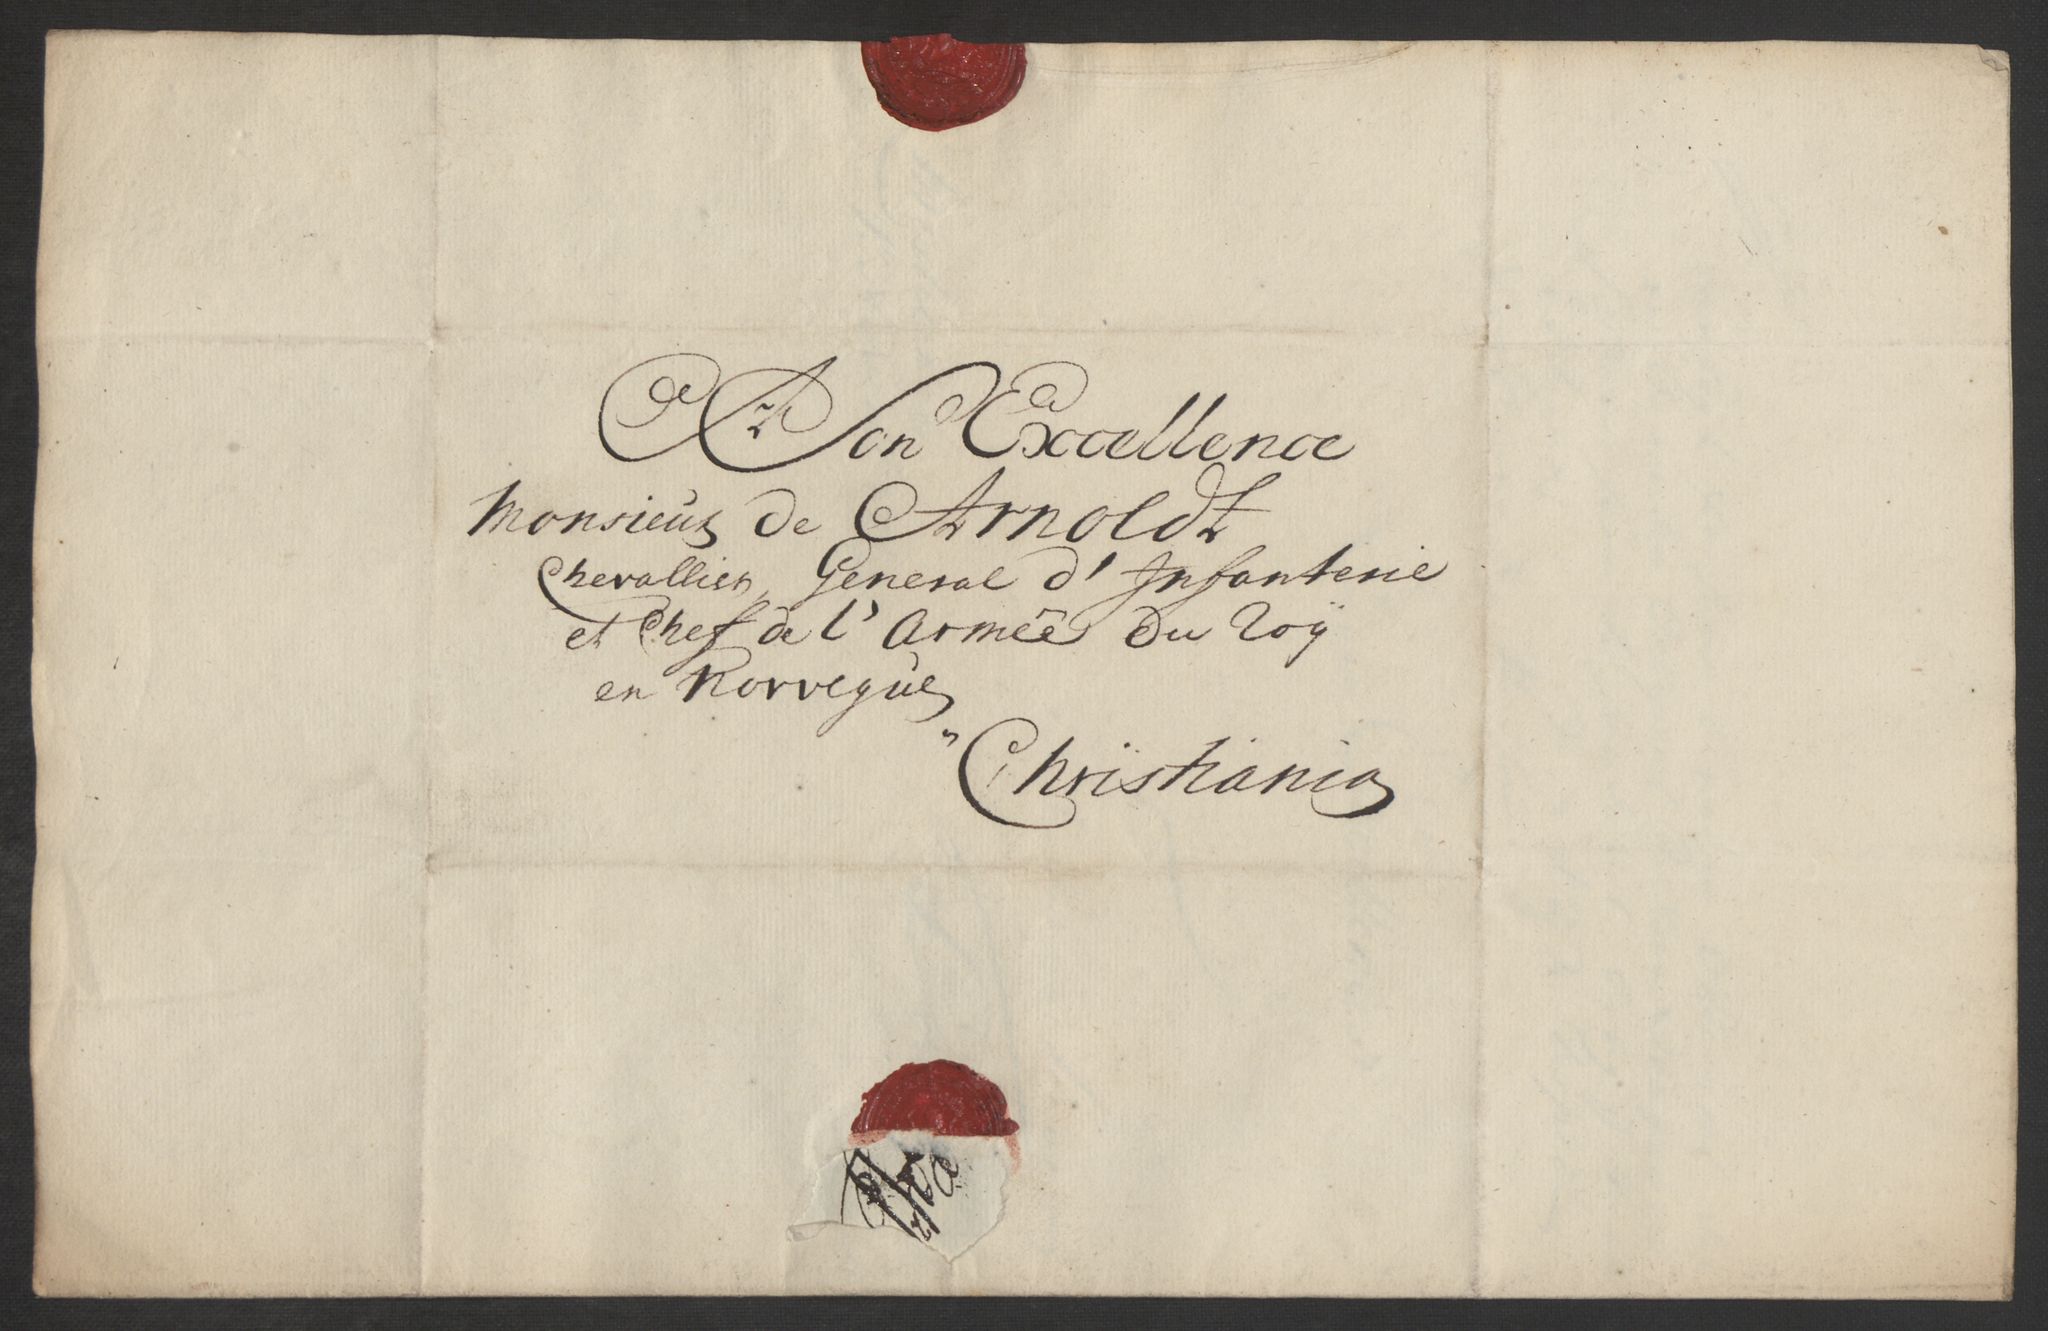 A Son Excellence
Monsieur de Arnoldt
Chevallier, General d'Infanterie
et Chef de l'Armée du Roÿ
en Norvegue
Christiania